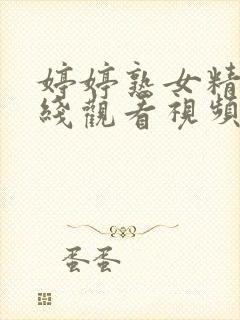 婷婷熟女精
綫觀看視頻
蛋蛋